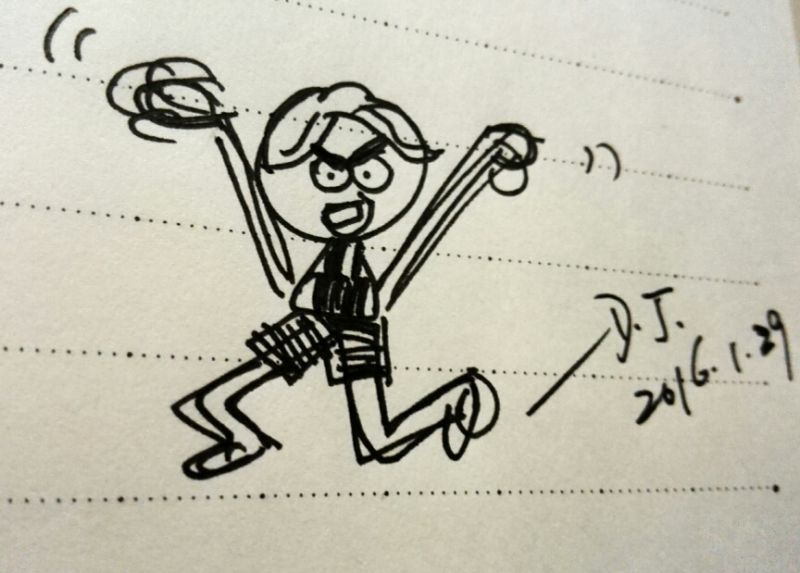 D.J.
2016.1.29